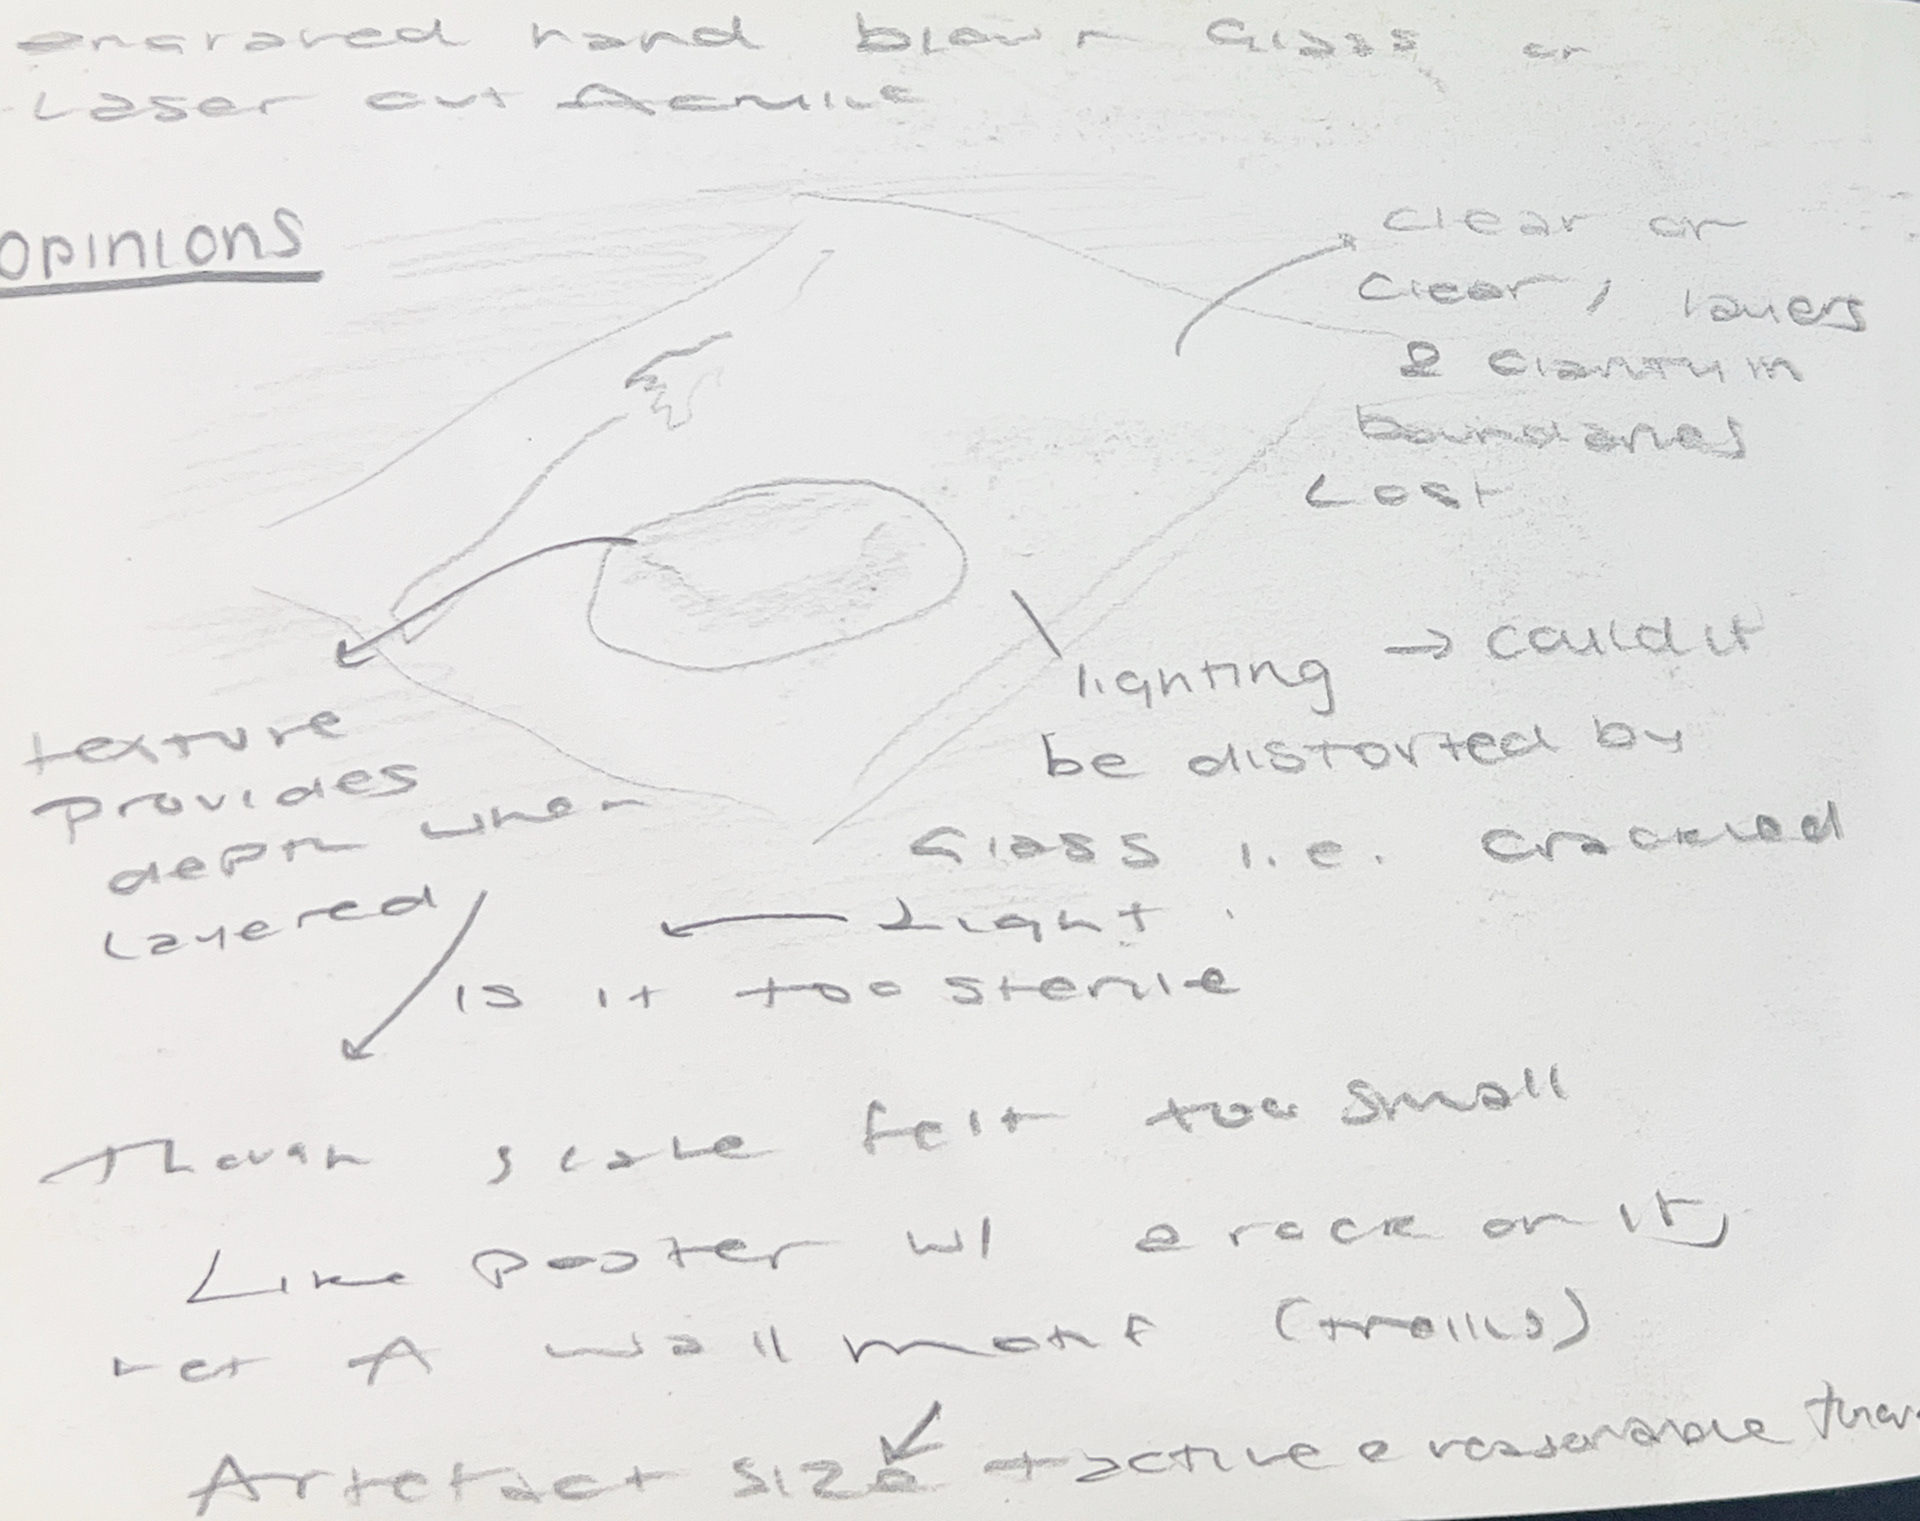 engraved hand blown Glass or
Laser cut Acrylic
OPINIONS
clear on
clear, layers
& clarity in
boundaries
Lost
lighting → could it
be distorted by
Glass i.e. crackled
Light
is it too sterile
texture
provides
depth when
layered
Though scale felt too small
Like poster w/ a rock on it,
not A wall motif (trellis)
Artefact size + active a reasonable